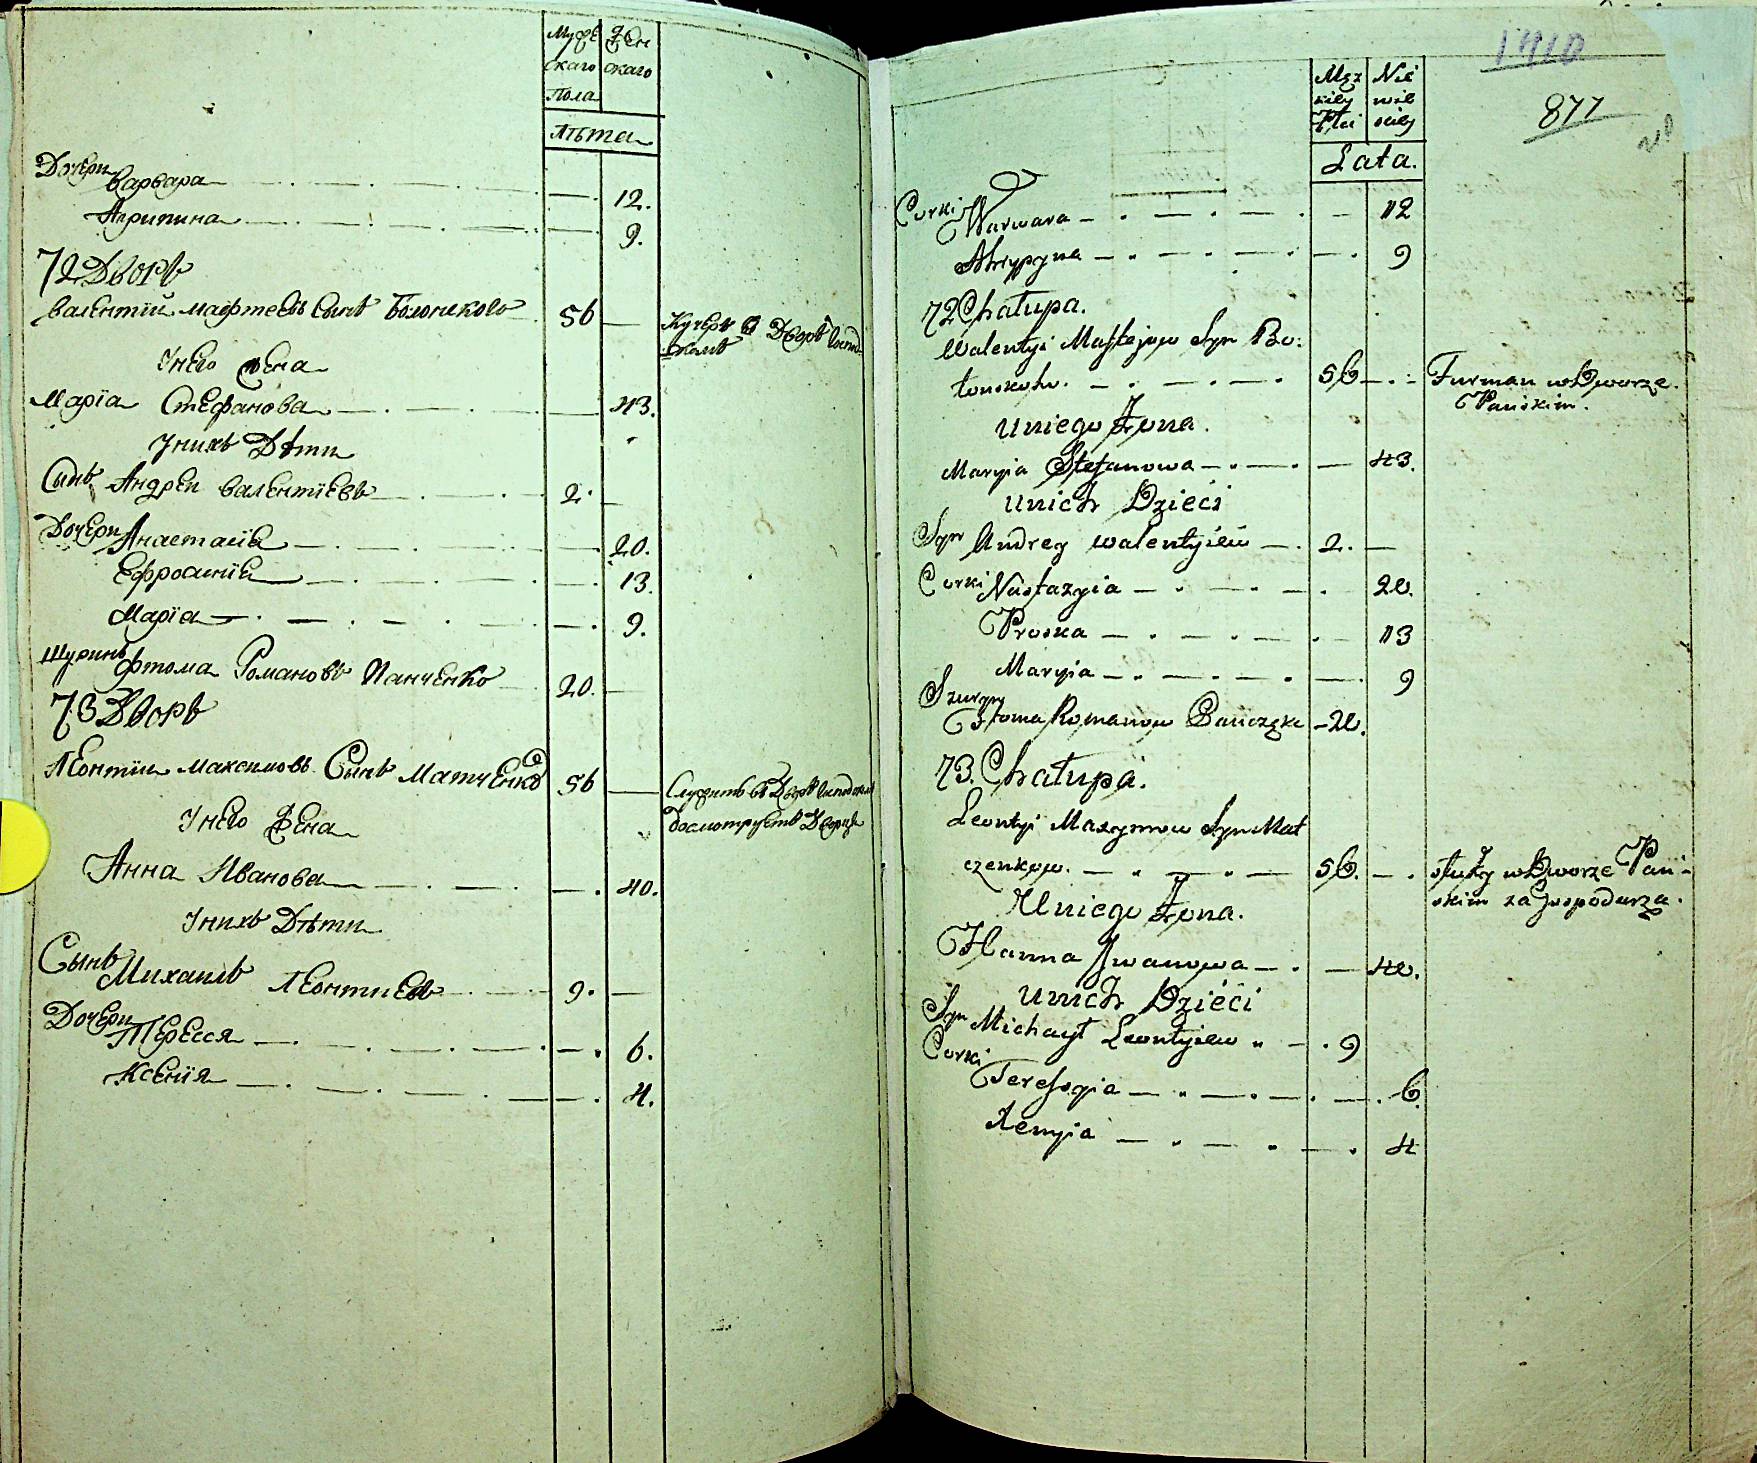 Муже Жен
скаго скаго
Пола
Лѣта
Дочери Варвара 12.
Агрипина 9.
72 Дворъ
Валентий Мафтеевъ Сынъ Болонковъ 56 Кучеръ в Дворѣ Господ
скомъ
Унего Жена
Мария Стефанова 43.
Унихъ Дѣти
Сынъ Андреи Валентиевъ 2.
Дочери Анастасия 20.
Ефросиния 13.
Мария 9.
Шуринъ Фтома Романовъ Панченко 20.
73 Дворъ
Леонтии Максимовъ Сынъ Матченко 56 Служитъ в Дворѣ Господском
Досмотруетъ Дворца
Унего Жена
Анна Иванова 40.
Унихъ Дѣти
Сынъ Михаилъ Леонтиевъ 9.
Дочери Тересся 6.
Ксения 4.
1410
877
Męz Nie
kiey wie
Płci sciey
Lata.
Curki Warwara 12
Ahrypyna 9
72 Chałupa.
Walentyi Maftejow Syn Bo:
łonkow. 56 Furman w Dworze
Pańskim.
Uniego Żona.
Maryia Stefanowa 43.
Unich Dzieci
Syn Andrey Walentyiew 2.
Curki Nastazyia 20.
Proska 13
Maryia 9
Szuryn Ftoma Romanow Panczęko 20.
73. Chałupa.
Leontyi Maxymow Syn Mat
czenkow. 56. służy w Dworze Pań:
skim za Gospodarza.
Uniego Żona.
Hanna Iwanowa 40.
Unich Dzieci
Syn Michaył Leontyiew 9
Curki Teressyia 6.
Xenyia 4